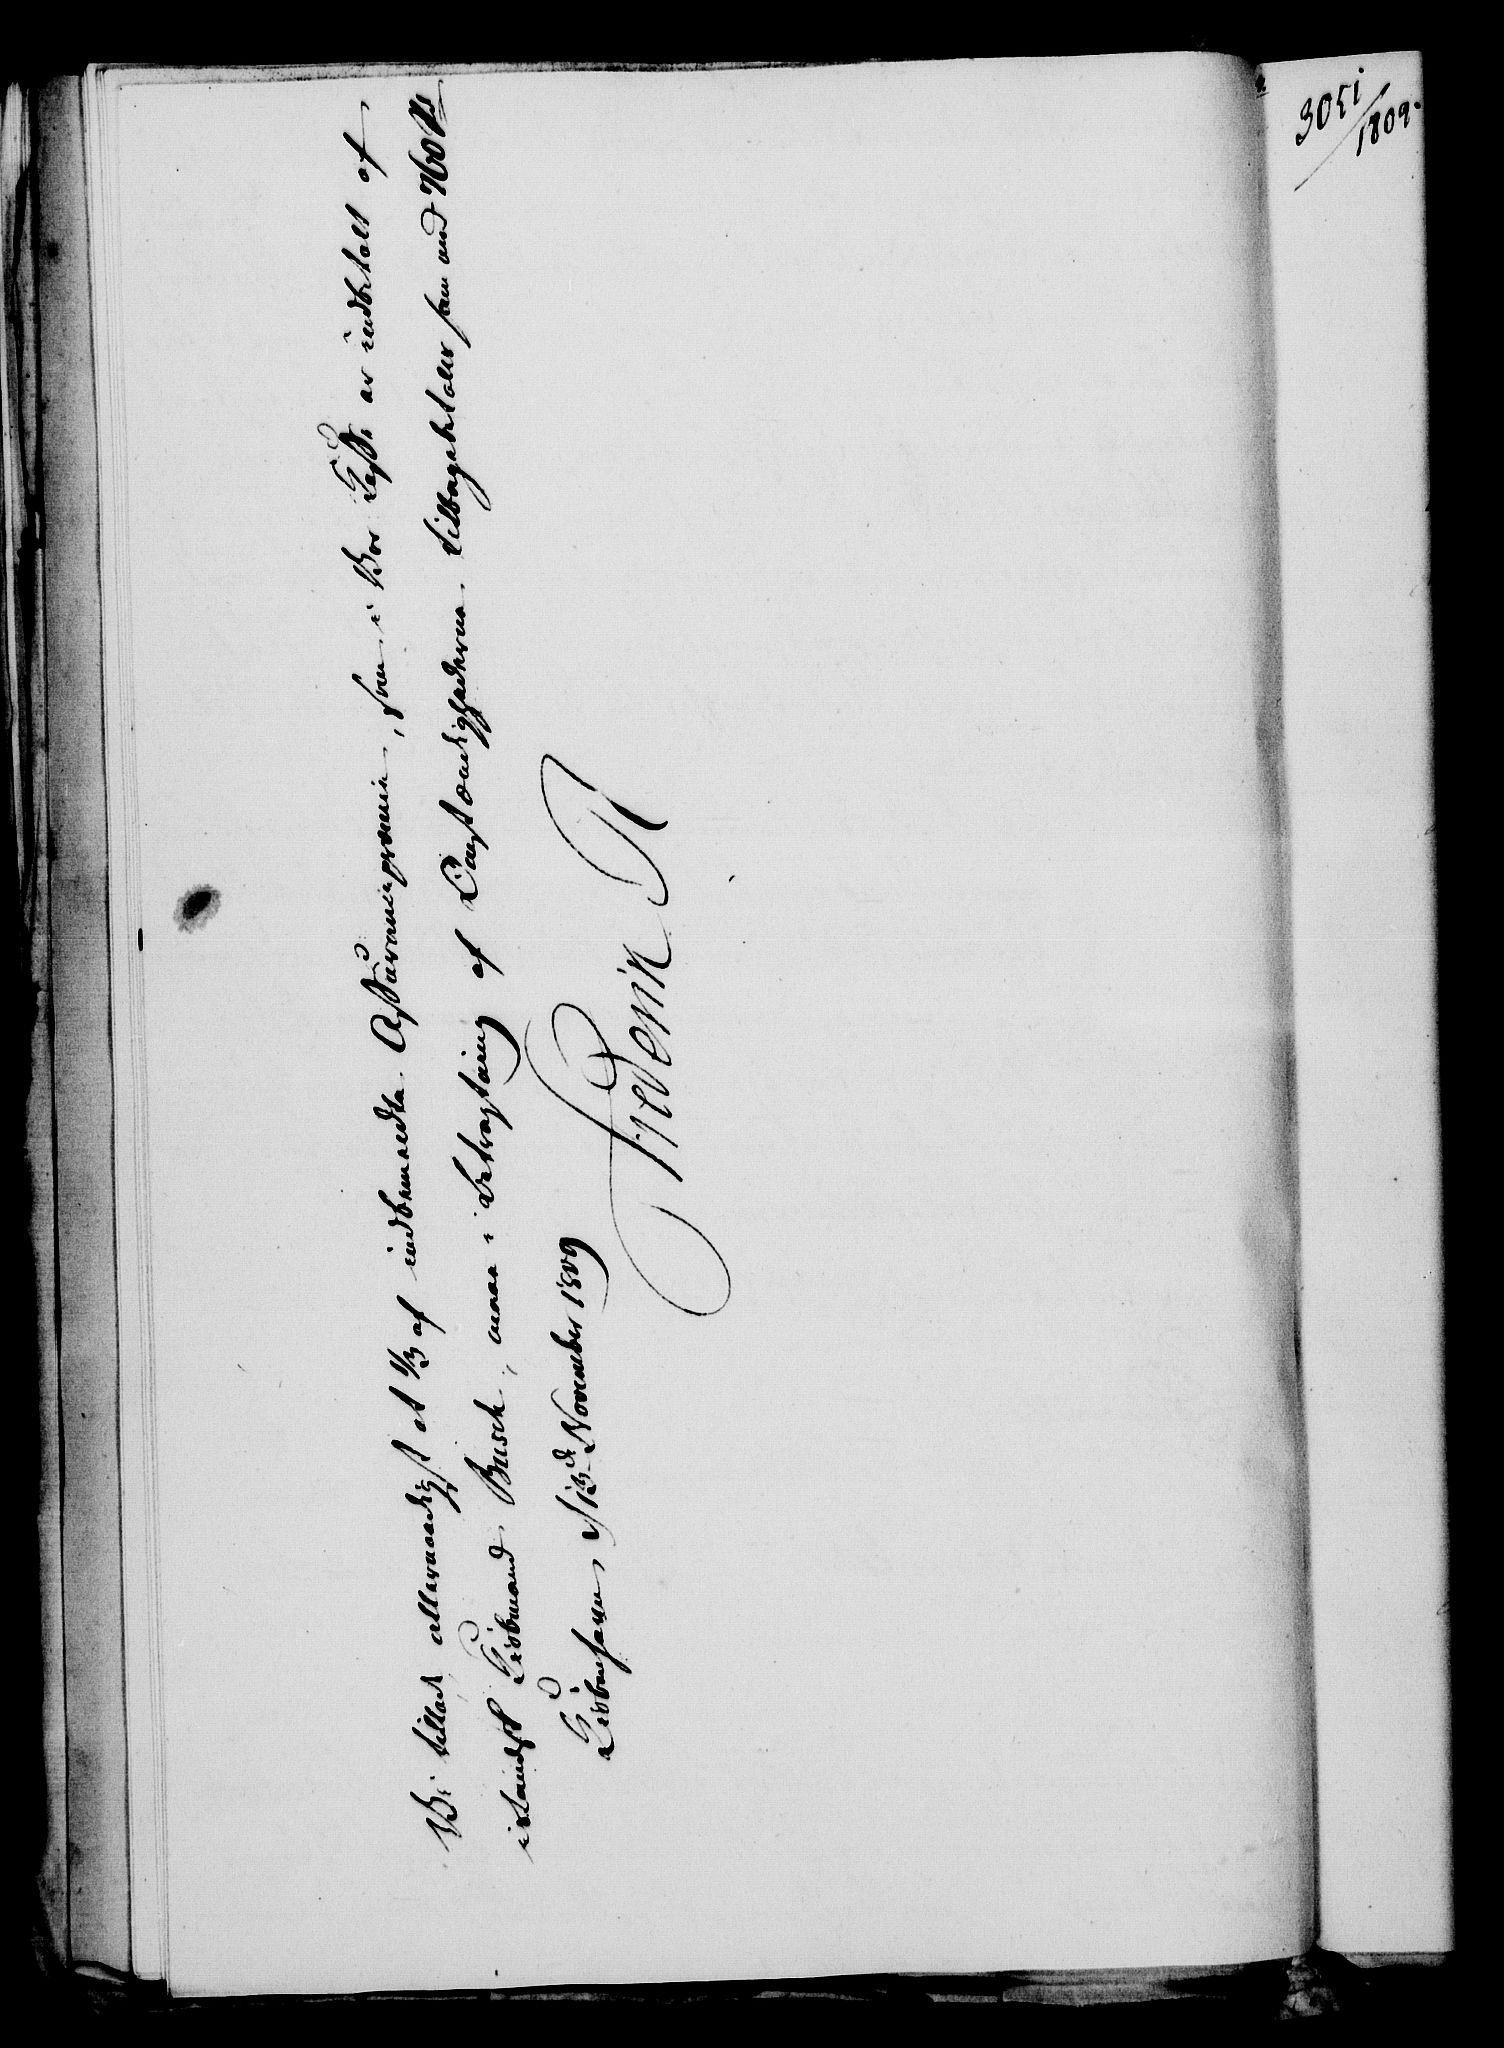 3051/1809.
Vi tillade allernaadigst at 1/3 af indbemældte Assurancepræmie, som i Vor Casse er indbetalt af
islandsk Kiøbmand Busch, maae i Betragtning af Omstændighederne tilbagebetales ham med 760 Rd
Kiøbenhavn, d 13de November 1809
Frederik R